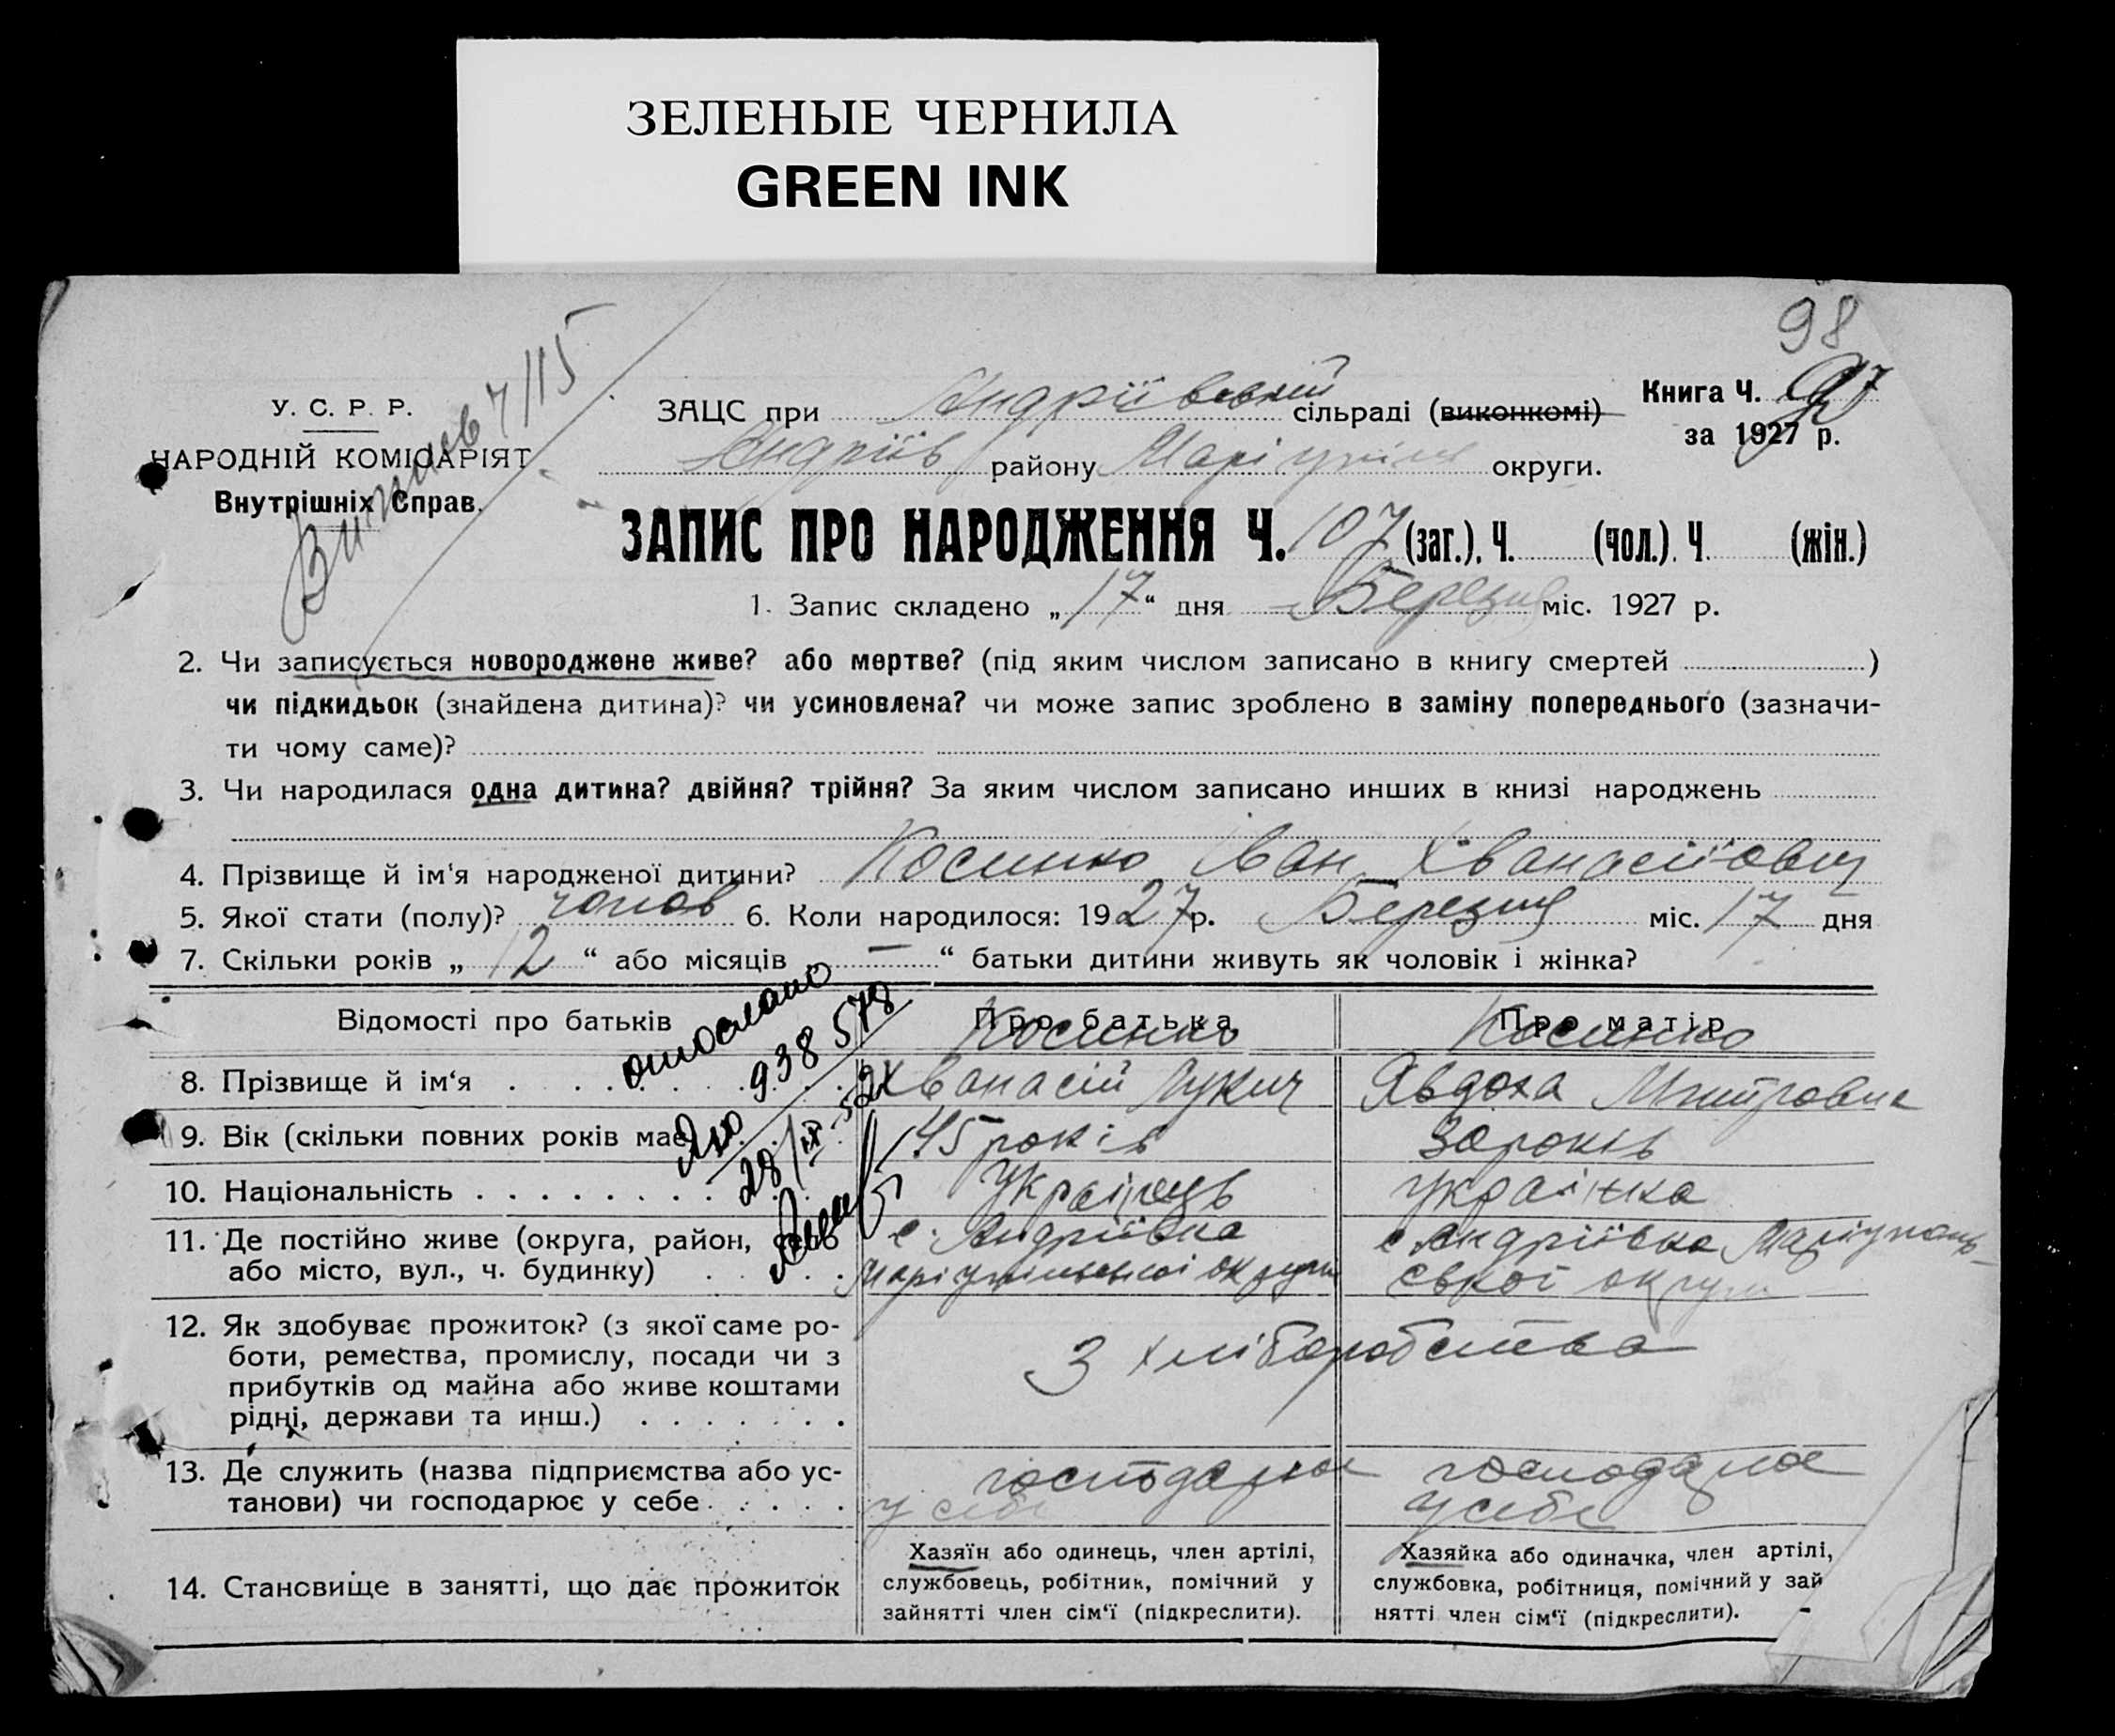 ЗЕЛЕНЫЕ ЧЕРНИЛА
GREEN INK
98
Книга Ч. 97
за 1927 р.
У. С. Р. Р.
НАРОДНІЙ КОМІСАРІЯТ
Внутрішніх Справ.
7/15
ЗАЦС при Андріївській сільраді (виконкомі)
Андріїв району Маріупіль округи.
ЗАПИС ПРО НАРОДЖЕННЯ Ч. 107 (заг.), Ч. (чол.). Ч. (жін.)
1. Запис складено „17“ дня Березня міс. 1927 р.
2. Чи записується новороджене живе? або мертве? (під яким числом записано в книгу смертей )
чи підкидьок (знайдена дитина)? чи усиновлена? чи може запис зроблено в заміну попереднього (зазначи-
ти чому саме)?
3. Чи народилася одна дитина? двійня? трійня? За яким числом записано инших в книзі народжень
4. Прізвище й ім‘я народженої дитини? Косинко Іван Хванасійович
5. Якої стати (полу)? чолов 6. Коли народилося: 1927р. Березня міс. 17 дня
7. Скільки років „12“ або місяців „—“ батьки дитини живуть як чоловік і жінка?
Відомості про батьків Про батька Про матір
Косинко Косинко
отослано
938578
28/IX-52
8. Прізвище й ім‘я Хванасій Лукич Явдоха Митровна
9. Вік (скільки повних років має 45 років 30 років
10. Національність Українець Українка
11. Де постійно живе (округа, район, село с. Андріївка с. Андріївка Маріупань-
або місто, вул., ч. будинку) Маріупільської округи ської округи
12. Як здобуває прожиток? (з якої саме ро-
боти, ремества, промислу, посади чи з З хліборобства
прибутків од майна або живе коштами
рідні, держави та инш.)
13. Де служить (назва підприємства або ус- господарює господарює
танови) чи господарює у себе у себе у себе
14. Становище в занятті, що дає прожиток
Хазяїн або одинець, член артілі,
службовець, робітник, помічний у
зайнятті член сім‘ї (підкреслити).
Хазяйка або одиначка, член артілі,
службовка, робітниця, помічний у зай
нятті член сім‘ї (підкреслити).